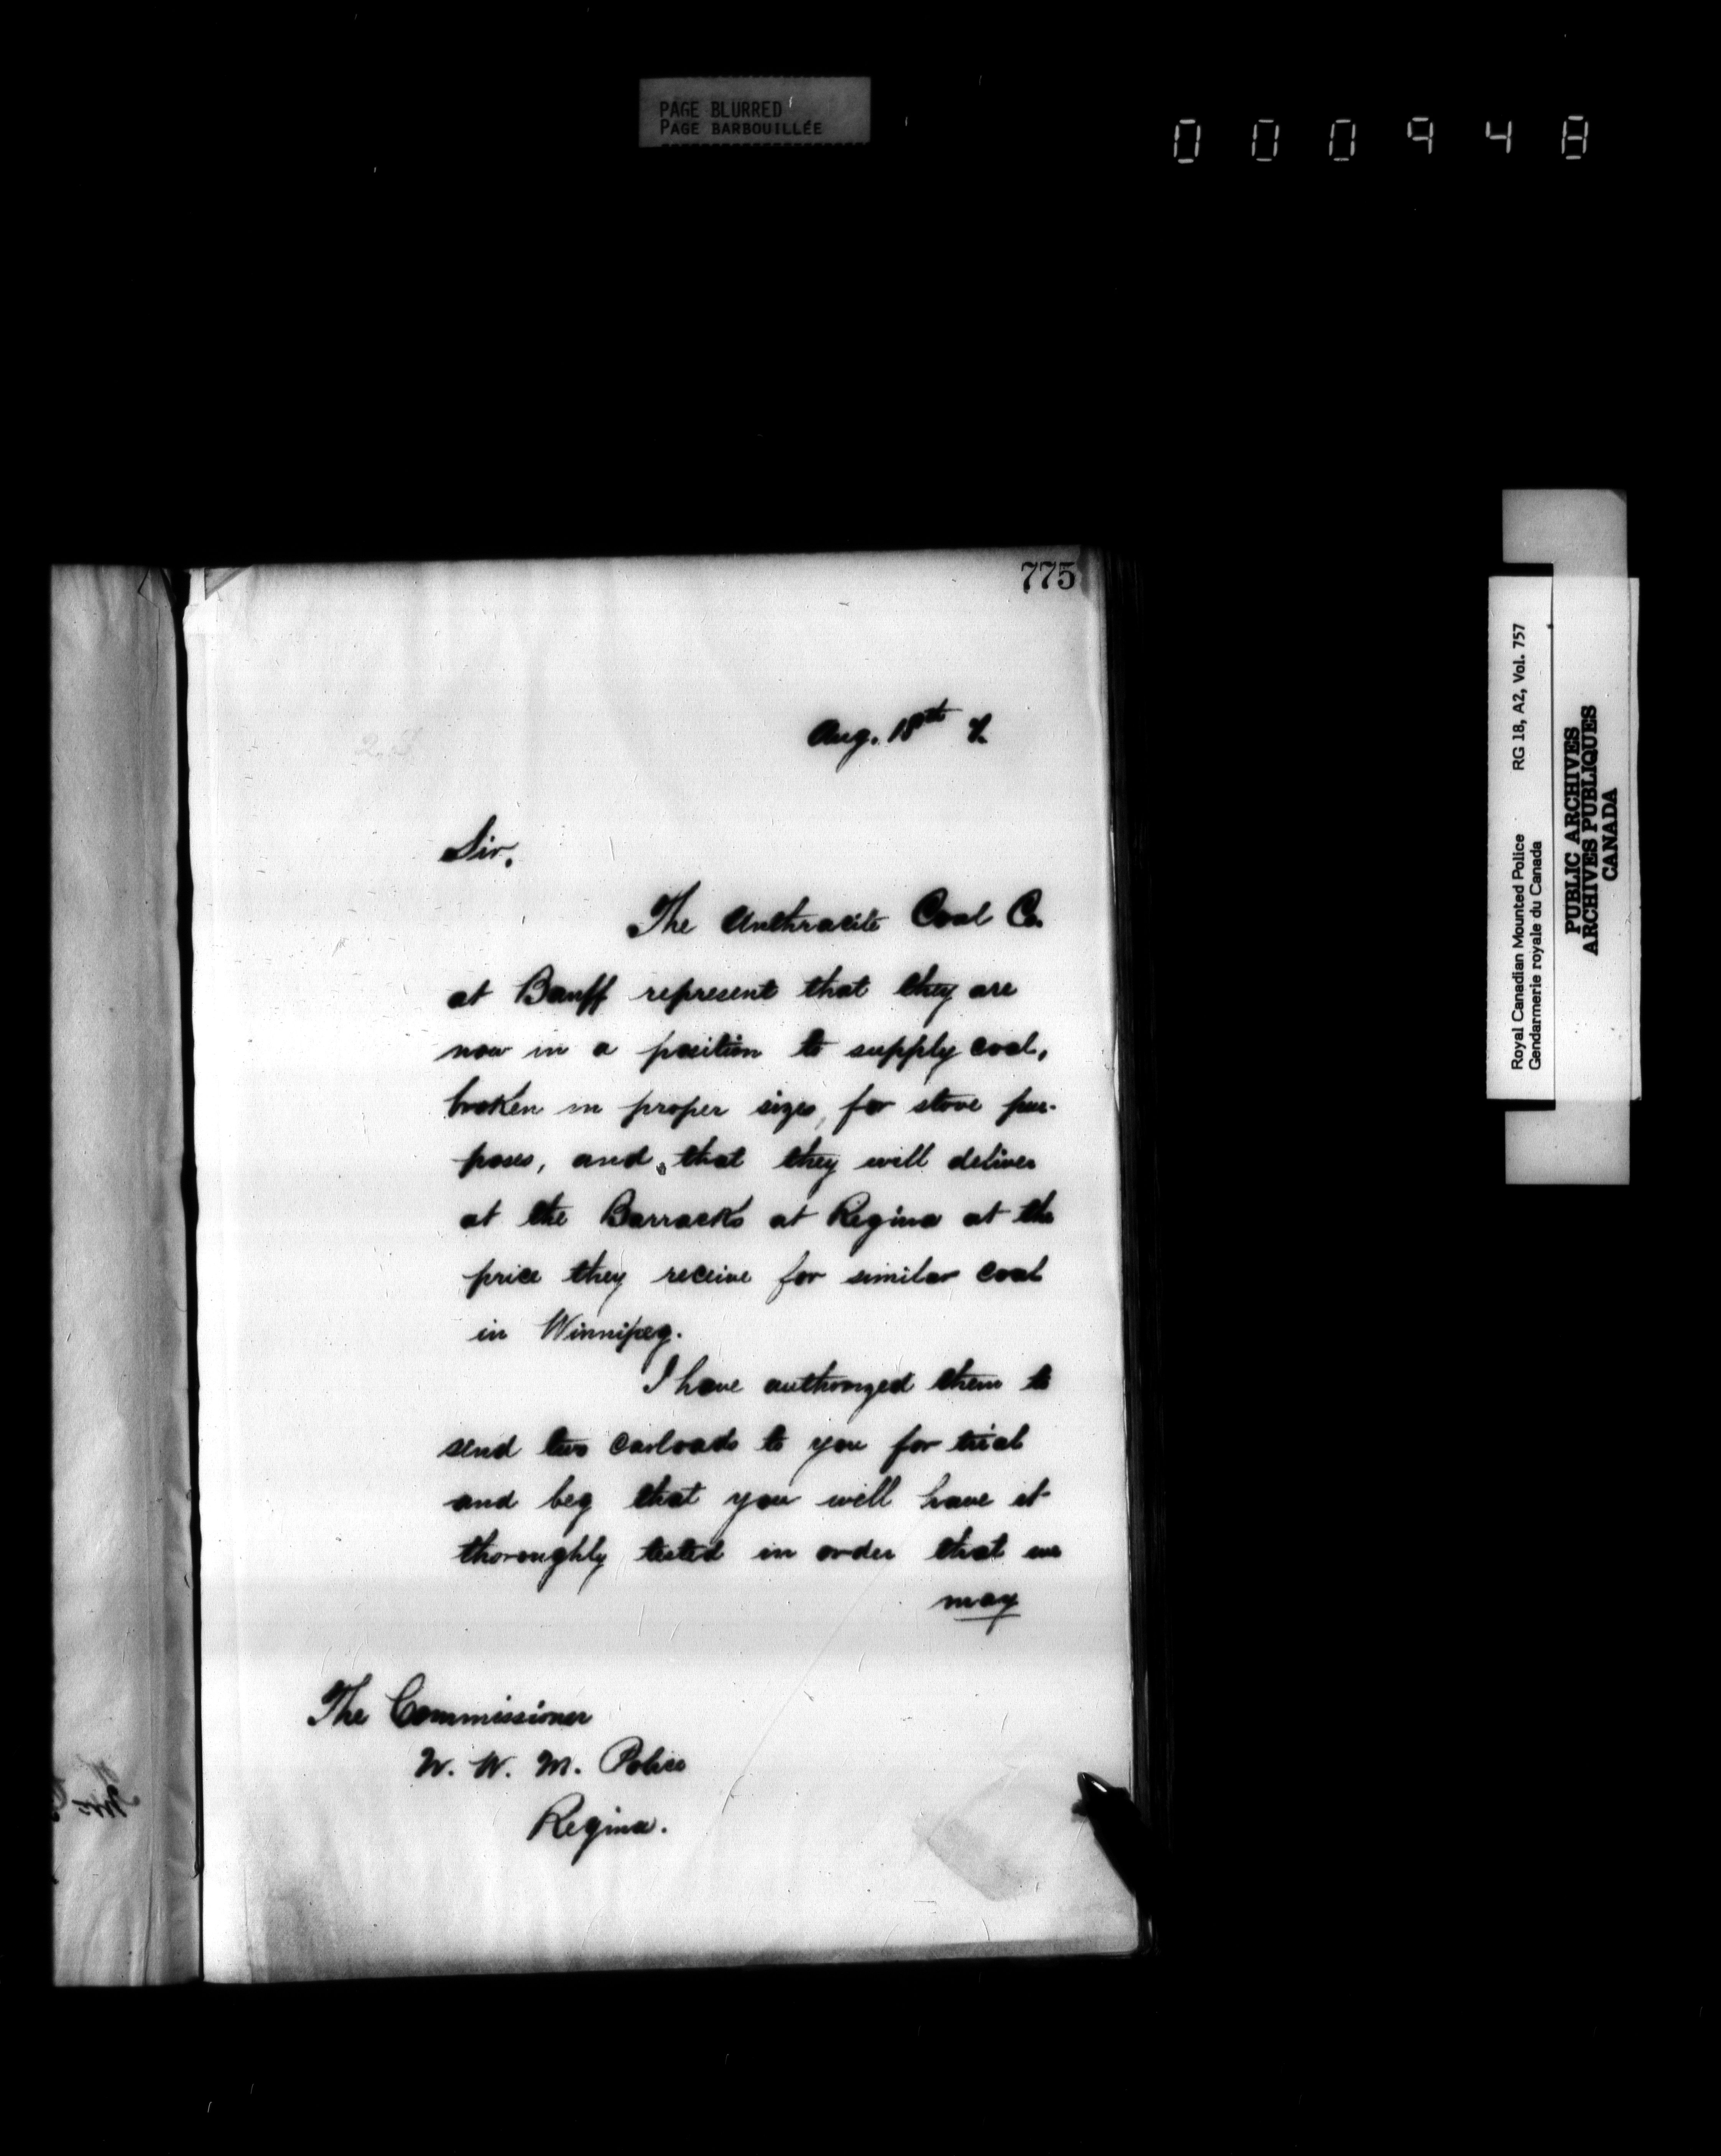 PAGE BLURRED
PAGE BARBOUILLÉE
000948
775
Aug. 18th
Sir,
The Anthracite Coal Co.
at Banff represent that they are
now in a position to supply coal,
broken in proper sizes, for stove pur-
poses, and that they will deliver
at the Barracks at Regina at the
price they receive for similar coal
in Winnipeg.
I have authorized them to
send two carloads to you for trial
and beg that you will have it
thoroughly tested in order that we
may
The Commissioner
N. W. M. Police
Regina.
Royal Canadian Mounted Police RG 18, A2, Vol. 757
Gendarmerie royale du Canada
PUBLIC ARCHIVES
ARCHIVES PUBLIQUES
CANADA